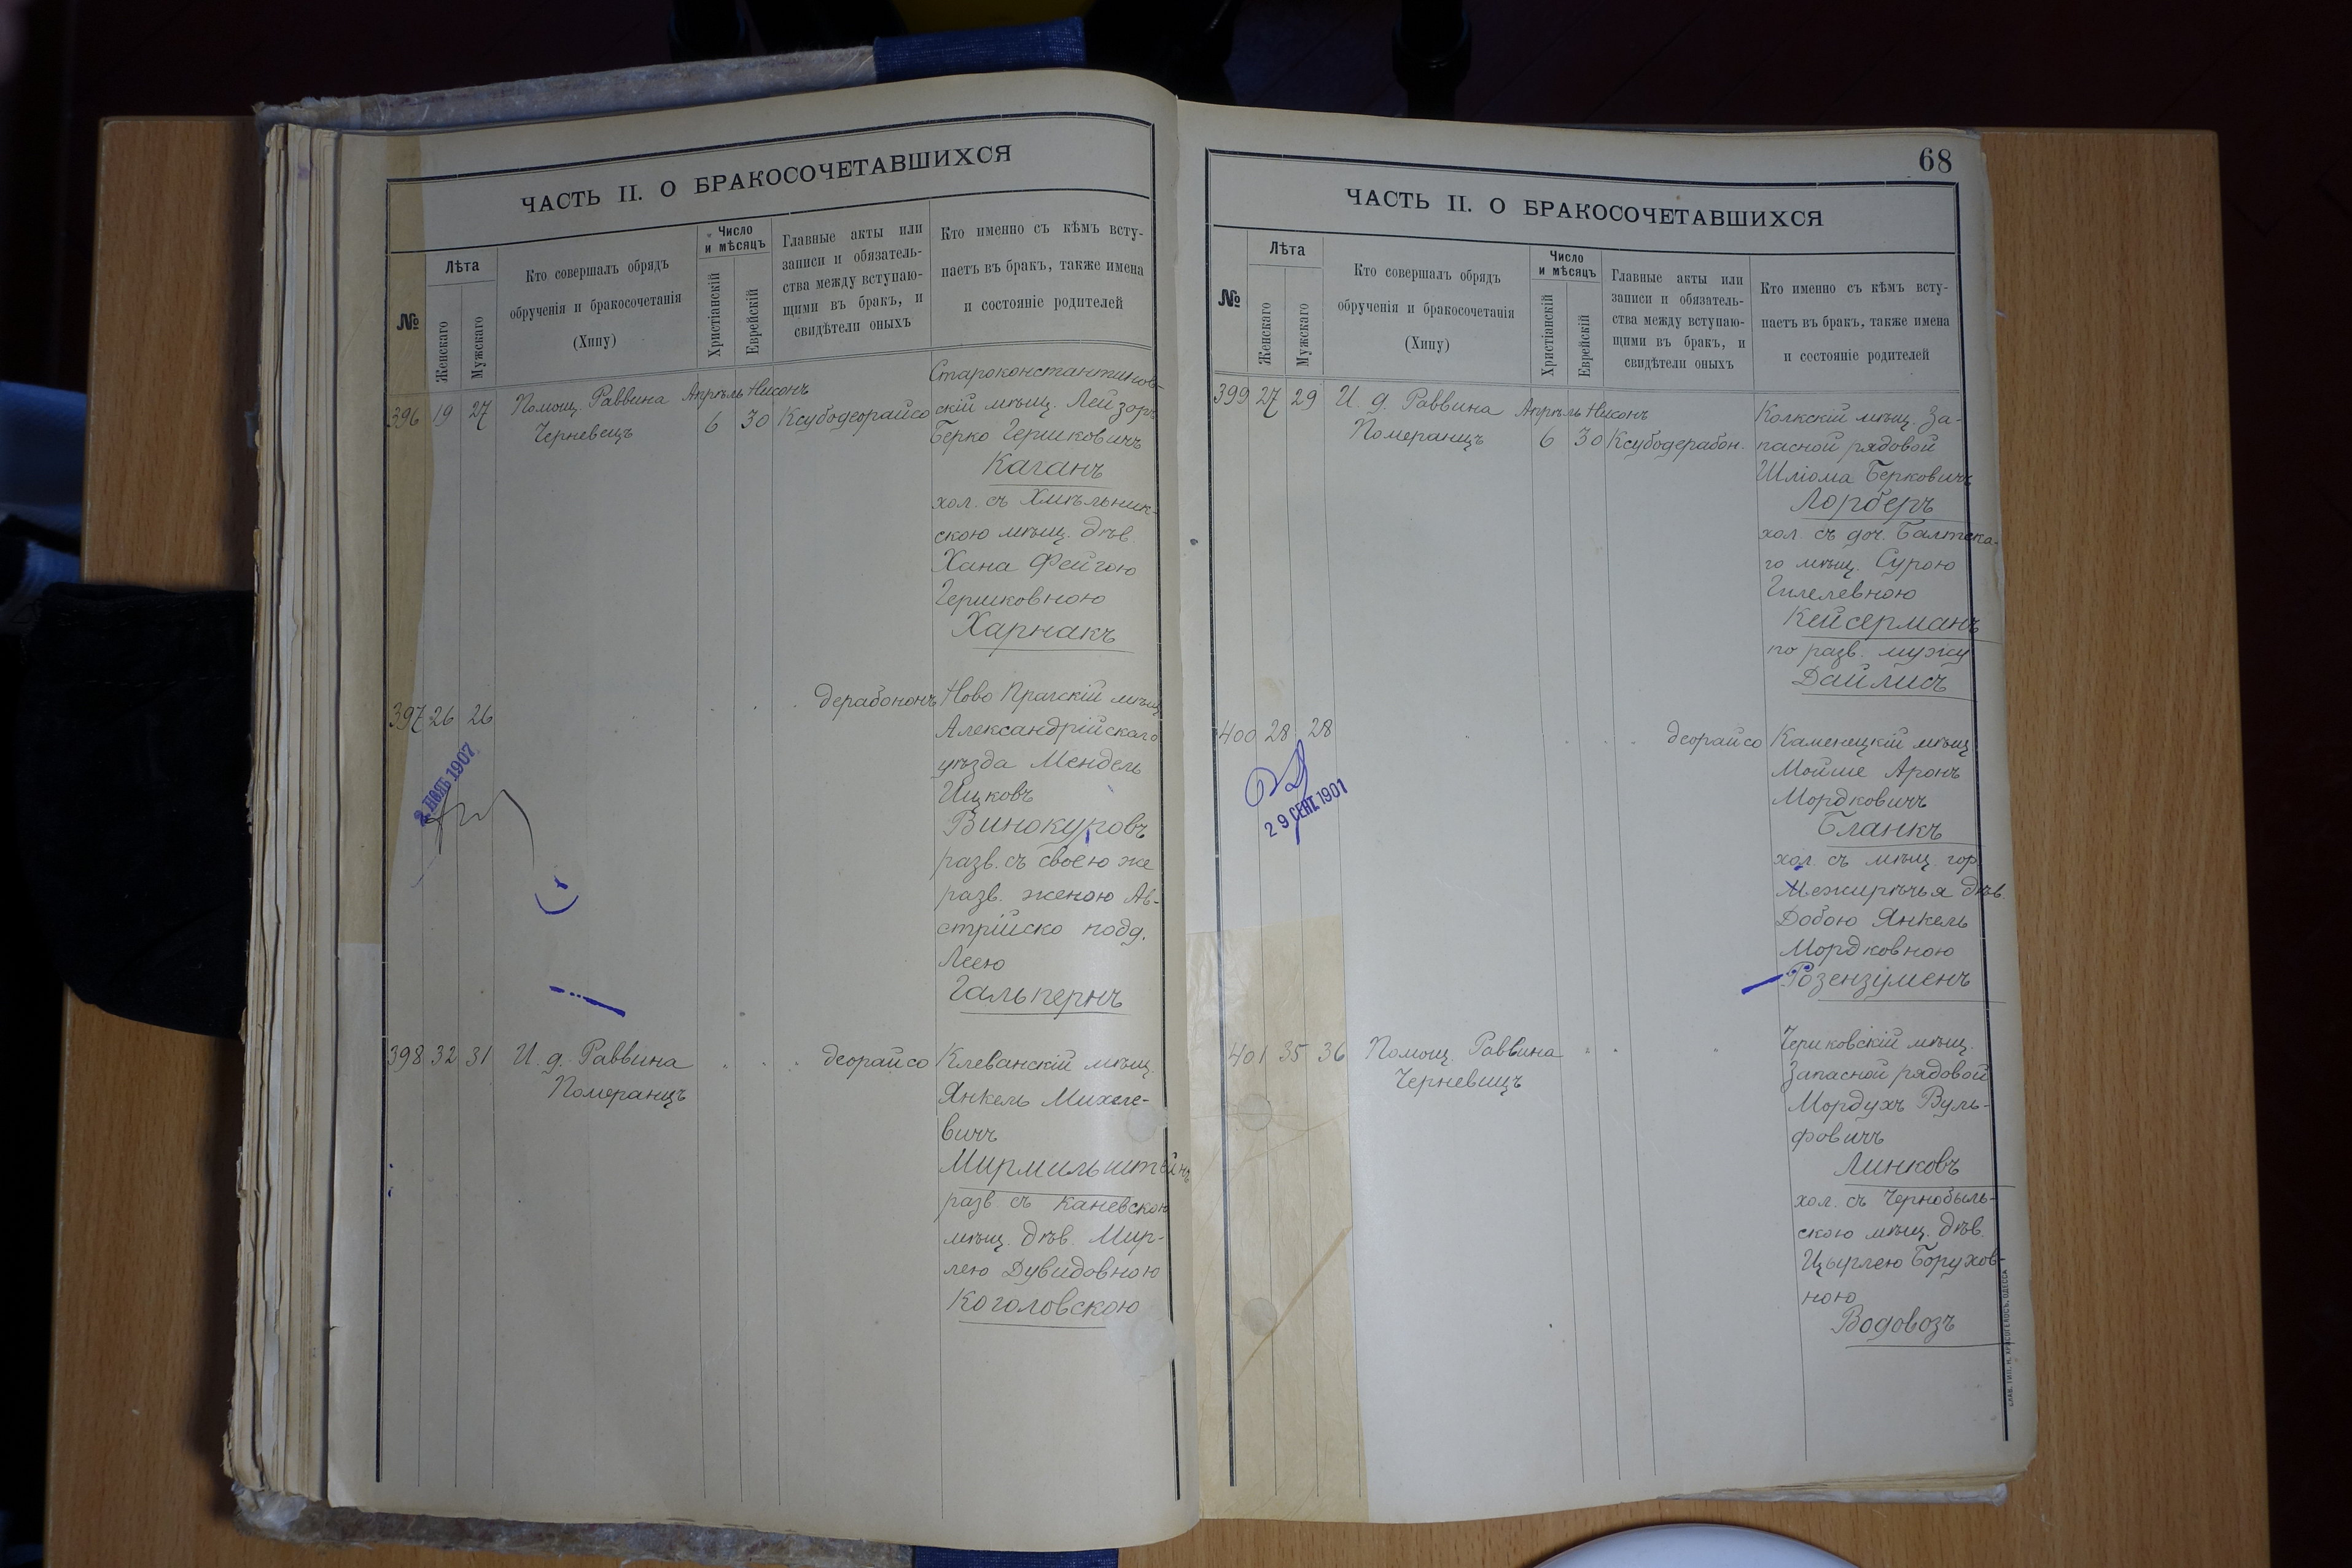 ЧАСТЬ II. О БРАКОСОЧЕТАВШИХСЯ
№
Лѣта
Женскаго
Мужскаго
Кто совершалъ обрядъ
обрученія и бракосочетанія
(Хипу)
Число
и мѣсяцъ
Христіанскій
Еврейскій
Главные акты или
записи и обязатель-
ства между вступаю-
щими въ бракъ, и
свидѣтели оныхъ
Кто именно съ кѣмъ всту-
паетъ въ бракъ, также имена
и состояніе родителей
396 19 27 Помощ. Раввина Апрѣль Нисонъ
Черневецъ 6 30 Ксубодеорайсо
Староконстантинов-
скій мѣщ. Лейзоръ
Берко Гершковичъ
Каганъ
хол. съ Хмѣльник-
скою мѣщ. дѣв.
Хана Фейгою
Гершковною
Харнакъ
397 26 26 дерабононъ
Ново Прагскій мѣщ.
Александрійскаго
уѣзда Мендель
Ицковъ
Винокуровъ
разв. съ своею же
разв. женою Ав-
стрійско подд.
Леею
Гальпернъ
2 1907
398 32 31 И. д. Раввина деорайсо
Померанцъ
Клеванскій мѣщ.
Янкель Михеле-
вичъ
Мирмильштейнъ
разв. съ Каневскою
мѣщ. дѣв. Мир-
лею Дувидовною
Коголовскою
68
ЧАСТЬ II. О БРАКОСОЧЕТАВШИХСЯ
№
Лѣта
Женскаго
Мужскаго
Кто совершалъ обрядъ
обрученія и бракосочетанія
(Хипу)
Число
и мѣсяцъ
Христіанскій
Еврейскій
Главные акты или
записи и обязатель-
ства между вступаю-
щими въ бракъ, и
свидѣтели оныхъ
Кто именно съ кѣмъ всту-
паетъ въ бракъ, также имена
и состояніе родителей
399 27 29 И. д. Раввина Апрѣль Нисонъ
Померанцъ 6 30 Ксубодерабон.
Колкскій мѣщ. За-
пасной рядовой
Шліома Берковичъ
Лорберъ
хол. съ доч. Балтска-
го мѣщ. Сурою
Гилелевною
Кейсерманъ
по разв. мужу
Дайлисъ
400 28 28 деорайсо
Каменецкій мѣщ.
Мойше Аронъ
Мордковичъ
Бланкъ
хол. съ мѣщ. гор.
Межирѣчья дѣв.
Добою Янкель
Мордковною
Розензуменъ
29 СЕНТ. 1901
401 35 36 Помощ. Раввина
Черневицъ
Чериковскій мѣщ.
Запасной рядовой
Мордухъ Вуль-
фовичъ
Линковъ
хол. съ Чернобыль-
скою мѣщ. дѣв.
Цырлею Борухов-
ною
Водовозъ
СЛАВ. ТИП. Н. ХРИСОГЕЛОСЪ, ОДЕССА